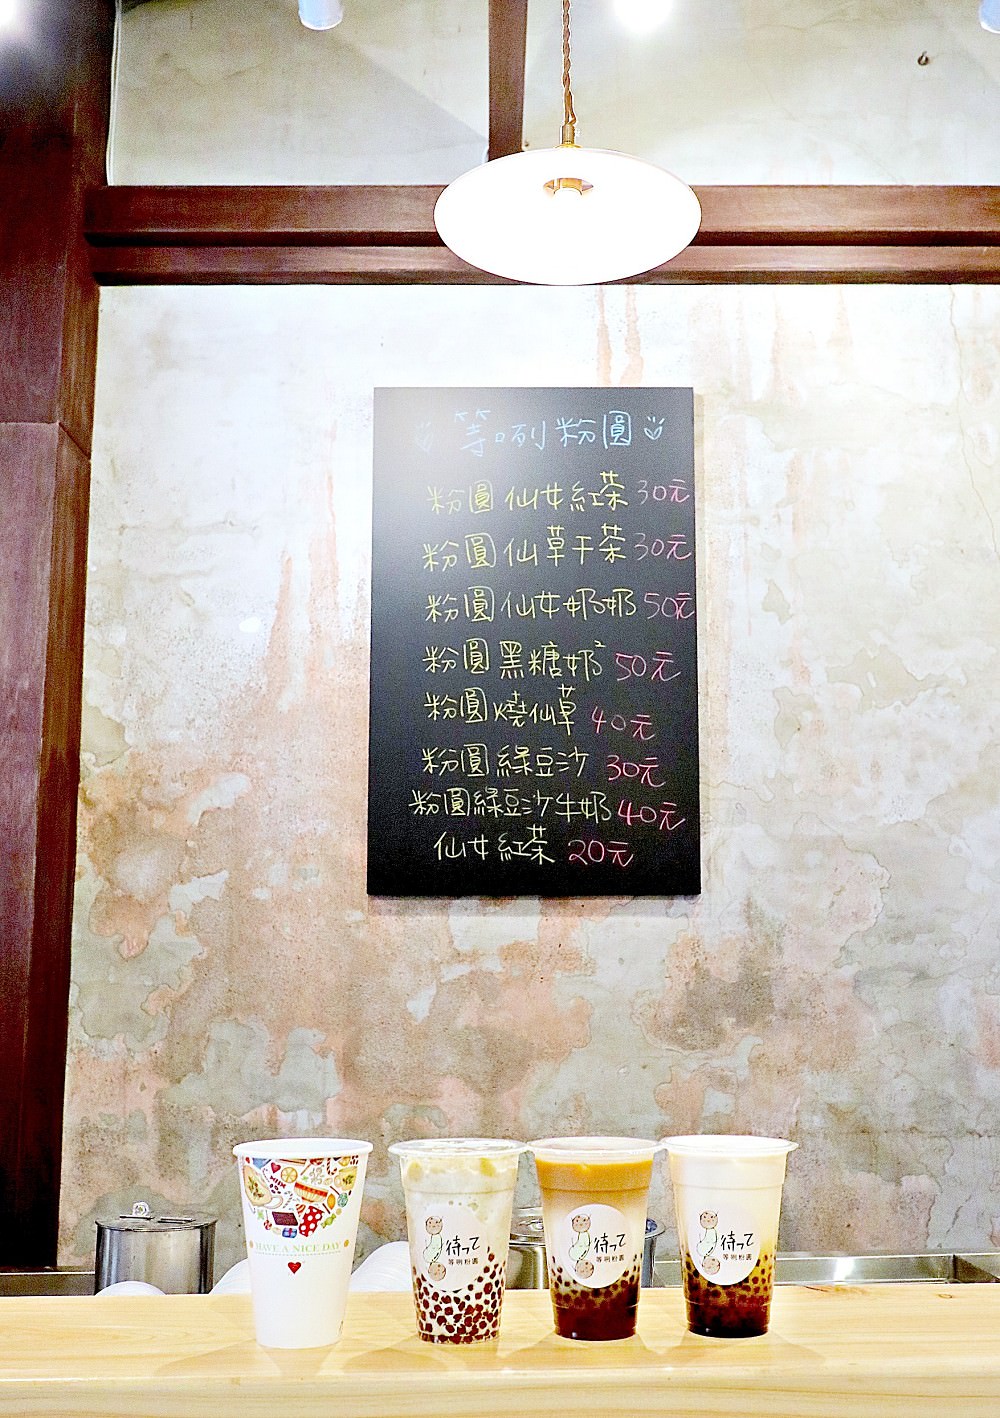 等咧粉圓
粉圓仙女紅茶 30元
粉圓仙草干茶 30元
粉圓仙女奶奶 50元
粉圓黑糖奶² 50元
粉圓燒仙草 40元
粉圓綠豆沙 30元
粉圓綠豆沙牛奶 40元
仙女紅茶 20元
HAVE A NICE DAY
待って
等咧粉圓
待って
等咧粉圓
待って
等咧粉圓